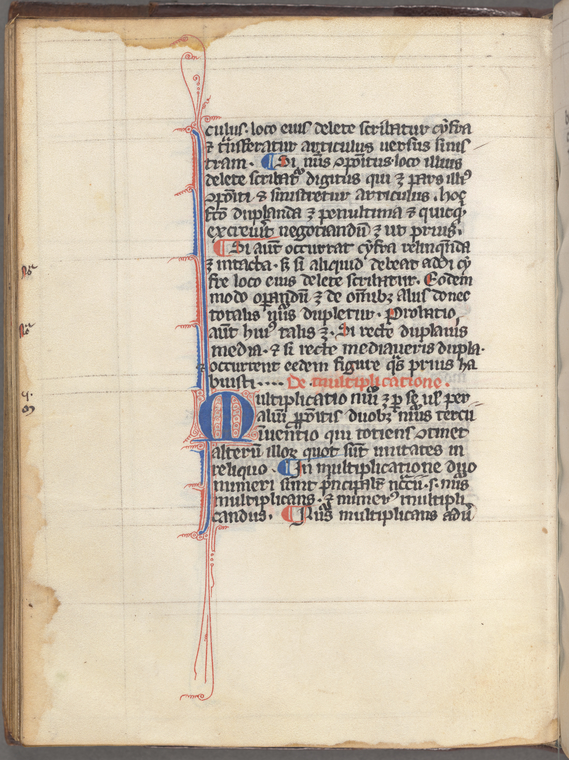 culus. loco eius delete scribatur cyfra
⁊ t̃nsferatur articulus versus sinis
tram. ¶ Si nũs ꝯpositus loco illius
delete scribatᷣ digitus qui ÷ pars illiꝰ
ꝯpoiti ⁊ sinistretur articulus. hoc
fcõ duplanda ÷ penultima ⁊ quicqͥ
excreuit negotiandũ ÷ ut prius.
¶ Si aut̃ occurrat cyfra relinqñda
÷ intacta. sꝫ si aliquid debeat addi cy
fre loco eius delete scribatur. Eodem
modo oꝑandũ ÷ de om̃ibꝫ aliis donec
totalis nũs dupletur. Probatio
aut̃ huiꝰ talis ÷. Si recte duplaris
media. ⁊ si recte mediaueris dupla.
⁊ occurrent eedem figure qͣs prius ha
buisti.... De multiplicatione.
Multiplicatio nũi ÷ ꝑ se ul' per
aliũ ꝓpoitis duobꝫ nũis tercii
inuentio qui totiens ꝯtinet
alterũ illoꝝ quot sũt unitates in
reliquo. ¶ In multiplicatione duo
numeri sunt pͥncipalit̃ nccii .s. nũs
multiplicans. ⁊ numerꝰ multipli
candus. ¶ Nũs multiplicans adũ